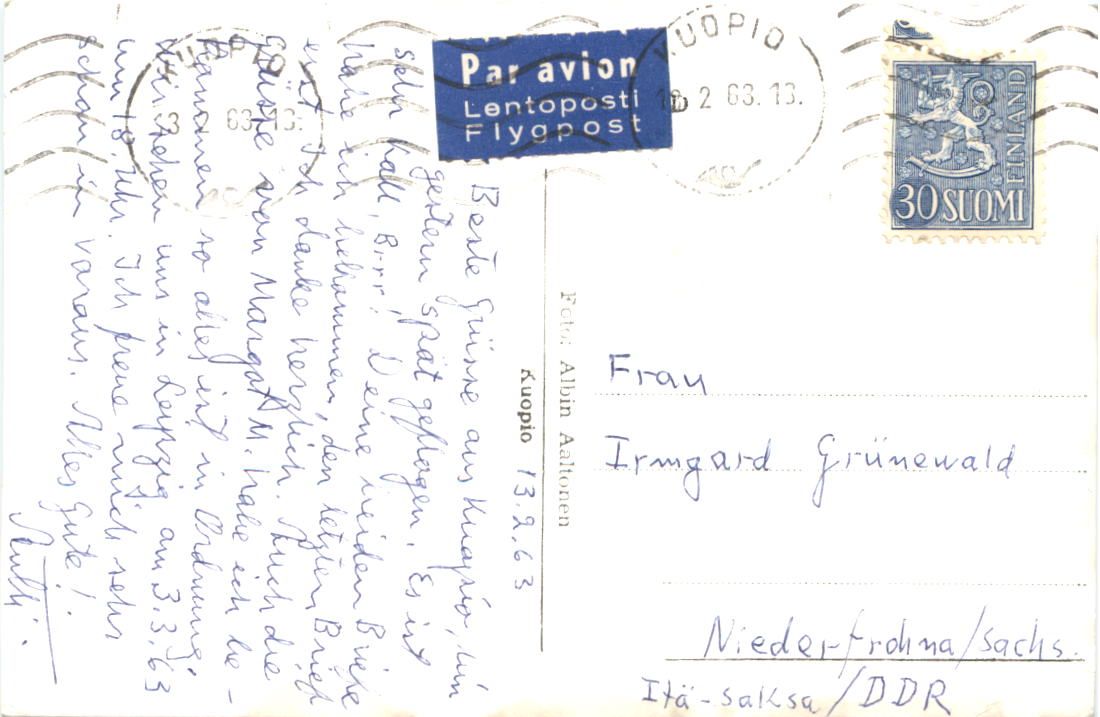 KUOPIO
63.13.
Par avion
Lentoposti
Flygpost
KUOPIO
2 63.13.
FINLAND
30 SUOMI
Kuopio 13.2.63
Beste Grüsse aus Kuopio, bin
gestern spät geflogen. Es ist
sehr kalt, Brrr! Deine beiden Briefe
habe ich bekommen, den letzten Brief
erst. Ich danke herzlich. Auch die
Grüsse von Margot M. habe ich be-
kommen so alles ist in Ordnung.
Wir sehen uns in Leipzig am 3.3.63
um 18 Uhr. Ich freue mich sehr
schon in varaus. Alles Gute!
Foto: Albin Aaltonen
Frau
Irmgard Grünewald
Niederfrohna/Sachs.
Itä-Saksa/DDR